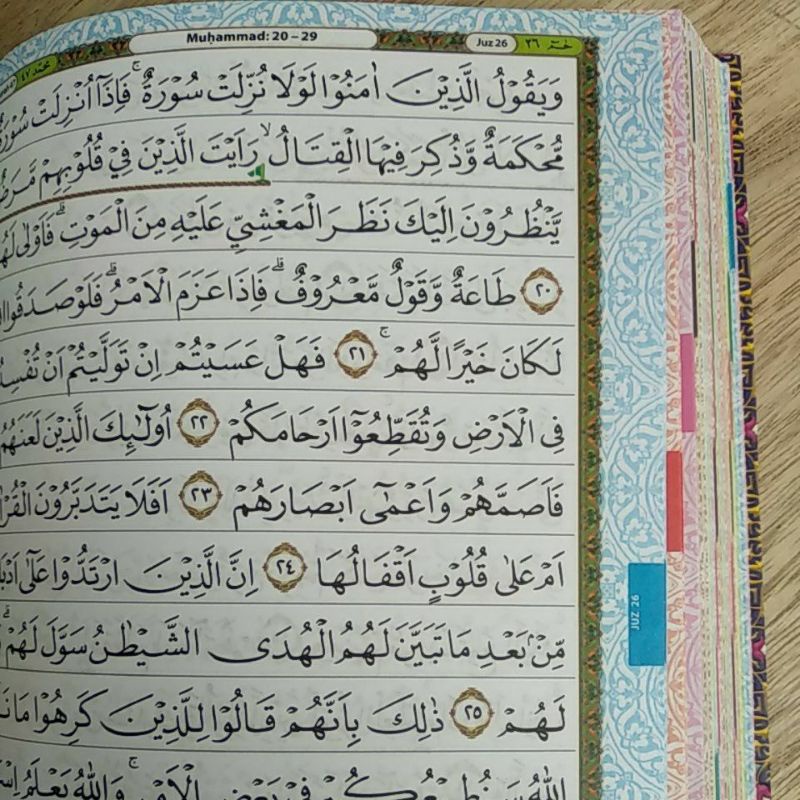 Muḥammad: 20 – 29
Juz 26
حٰمۤ ٢٦
محمّد ٤٧
وَيَقُوْلُ الَّذِيْنَ اٰمَنُوْا لَوْلَا نُزِّلَتْ سُوْرَةٌ ۚ فَاِذَآ اُنْزِلَتْ سُوْرَةٌ
مُّحْكَمَةٌ وَّذُكِرَ فِيْهَا الْقِتَالُ ۙ رَاَيْتَ الَّذِيْنَ فِيْ قُلُوْبِهِمْ مَّرَضٌ
يَّنْظُرُوْنَ اِلَيْكَ نَظَرَ الْمَغْشِيِّ عَلَيْهِ مِنَ الْمَوْتِ ۗ فَاَوْلٰى لَهُمْ
٢٠ طَاعَةٌ وَّقَوْلٌ مَّعْرُوْفٌ ۗ فَاِذَا عَزَمَ الْاَمْرُ ۗ فَلَوْ صَدَقُوا
لَكَانَ خَيْرًا لَّهُمْ ۚ ٢١ فَهَلْ عَسَيْتُمْ اِنْ تَوَلَّيْتُمْ اَنْ
فِى الْاَرْضِ وَتُقَطِّعُوْٓا اَرْحَامَكُمْ ٢٢ اُولٰۤىِٕكَ الَّذِيْنَ لَعَنَهُمُ
فَاَصَمَّهُمْ وَاَعْمٰٓى اَبْصَارَهُمْ ٢٣ اَفَلَا يَتَدَبَّرُوْنَ
اَمْ عَلٰى قُلُوْبٍ اَقْفَالُهَا ٢٤ اِنَّ الَّذِيْنَ ارْتَدُّوْا عَلٰٓى
مِّنْۢ بَعْدِ مَا تَبَيَّنَ لَهُمُ الْهُدَى الشَّيْطٰنُ سَوَّلَ لَهُمْ ۗ
لَهُمْ ٢٥ ذٰلِكَ بِاَنَّهُمْ قَالُوْا لِلَّذِيْنَ كَرِهُوْا مَا
اللّٰهُ سَنُطِيْعُكُمْ فِيْ بَعْضِ الْاَمْرِ ۚ وَاللّٰهُ يَعْلَمُ
JUZ 26